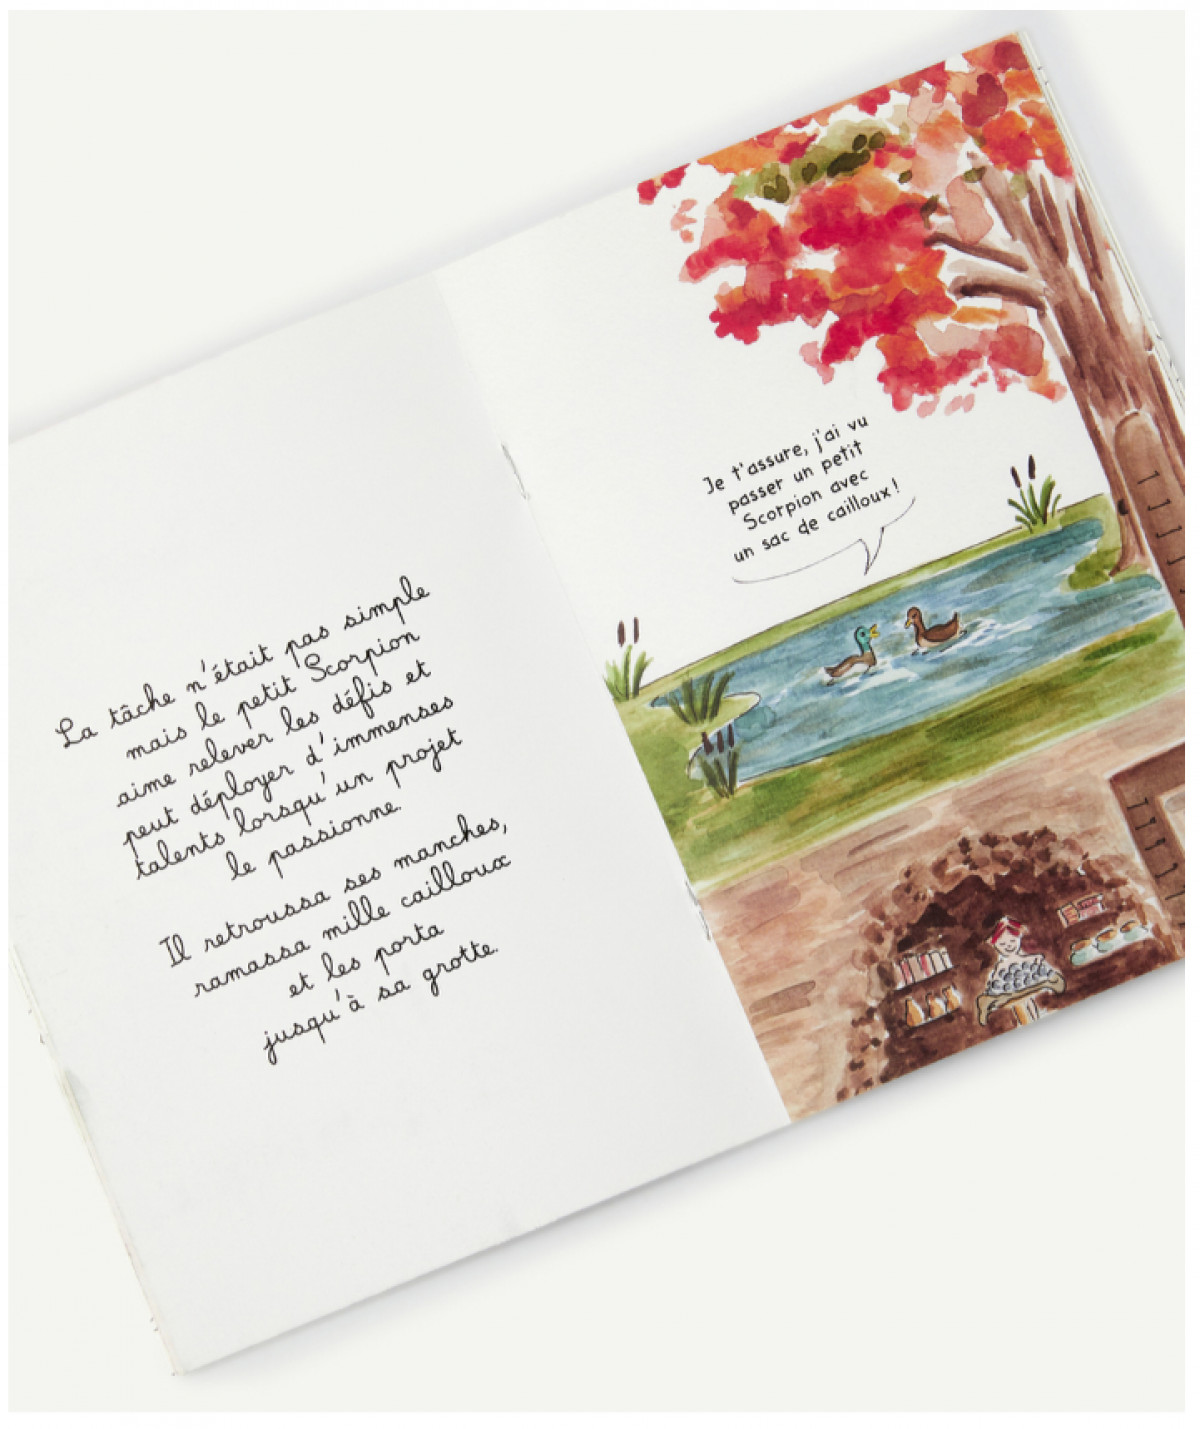 La tâche n'était pas simple
mais le petit Scorpion
aime relever les défis et
peut déployer d'immenses
talents lorsqu'un projet
le passionne.
Il retroussa ses manches,
ramassa mille cailloux
et les porta
jusqu'à sa grotte.
Je t'assure, j'ai vu
passer un petit
Scorpion avec
un sac de cailloux!